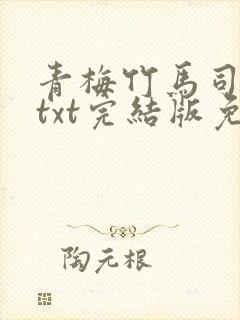 青梅竹馬司
txt完結版免
陶元根